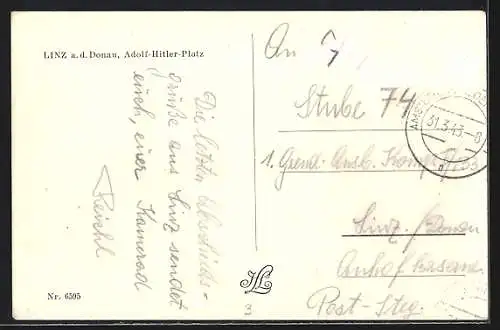 LINZ a.d.Donau, Adolf-Hitler-Platz
Die letzten Abschieds-
grüße aus Linz sendet
euch, euer Kamerad
Reichl
Nr. 6595
An
Stube 74
1. Grend. Ausb. Komp.
Linz /Donau
Post-Steg.
31.3.43-8
3